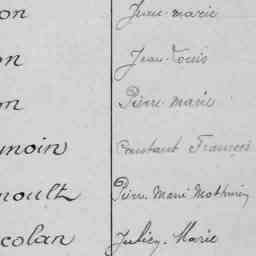 on Jean-marie
on Jean-Louis
on Pierre marie
moin Constant François
noult Pierre Marie Mathurin
colan Julien-Marie